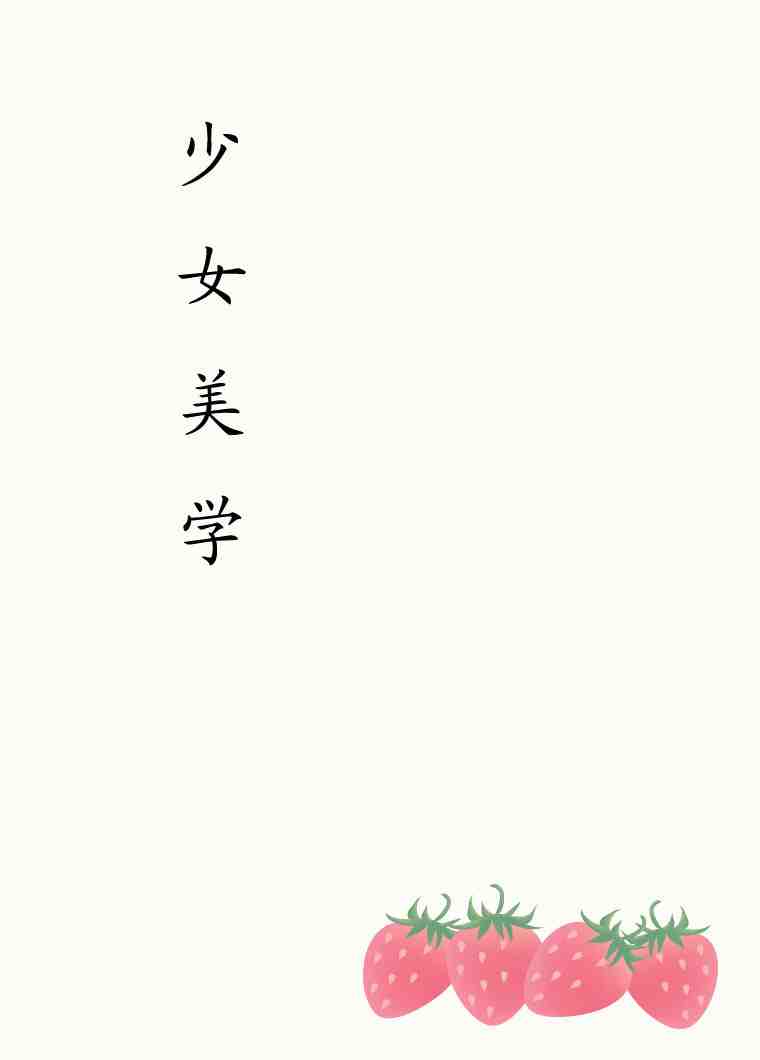 少女美学